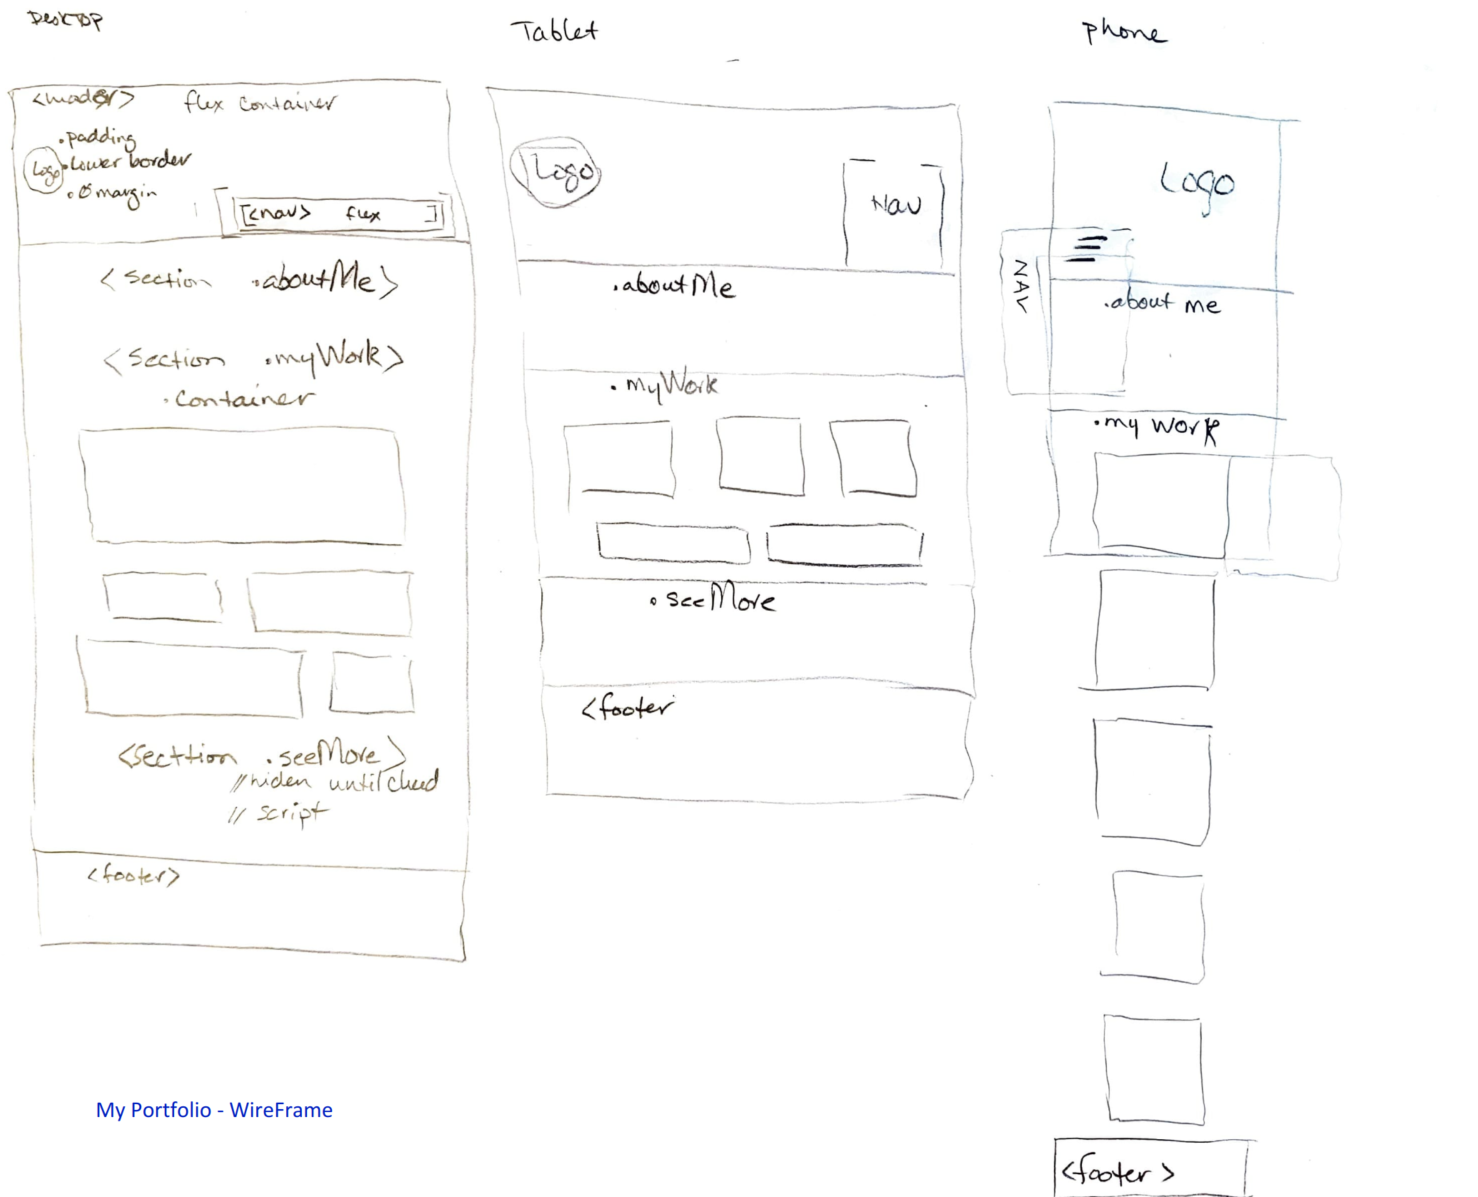 DeskTop
<header> flex container
.padding
Logo
.Lower border
.0 margin
[<nav> flex ]
<section .aboutMe>
<section .myWork>
.container
<secttion .seeMore>
//hiden until
// script
<footer>
Tablet
Logo
Nav
.aboutMe
.myWork
.seeMore
<footer
phone
Logo
NAV
.about me
.my work
<footer>
My Portfolio - WireFrame